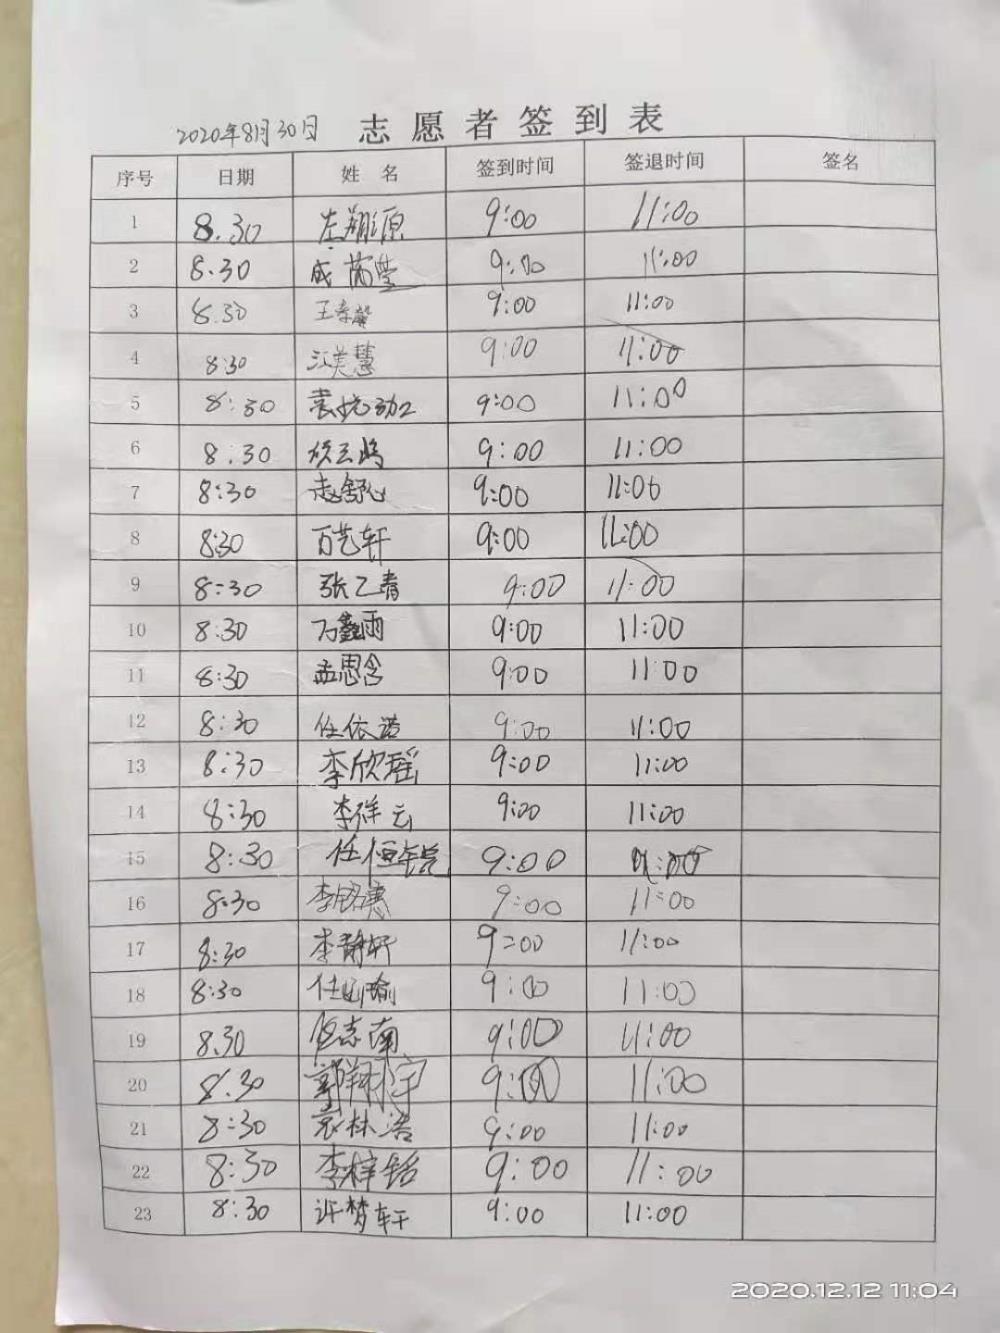 2020年8月30日 志愿者签到表
序号 日期 姓 名 签到时间 签退时间 签名
1 8.30 左翔源 9:00 11:00
2 8.30 成 9:00 11:00
3 8.30 王春馨 9:00 11:00
4 8:30 江美慧 9:00 11:00
5 8:30 袁 9:00 11:00
6 8.30 9:00 11:00
7 8:30 赵舒心 9:00 11:00
8 8:30 百艺轩 9:00 11:00
9 8:30 张乙青 9:00 11:00
10 8:30 万鑫雨 9:00 11:00
11 8:30 孟思含 9:00 11:00
12 8:30 任依诺 9:00 11:00
13 8:30 李欣瑶 9:00 11:00
14 8:30 李祥云 9:00 11:00
15 8:30 任恒锐 9:00
16 8:30 李铭惠 9:00 11:00
17 8:30 李静轩 9:00 11:00
18 8:30 任 瑜 9:00 11:00
19 8.30 志南 9:00 11:00
20 8.30 郭翔宇 9:00 11:00
21 8:30 袁林浩 9:00 11:00
22 8:30 李梓铭 9:00 11:00
23 8:30 许梦轩 9:00 11:00
2020.12.12 11:04